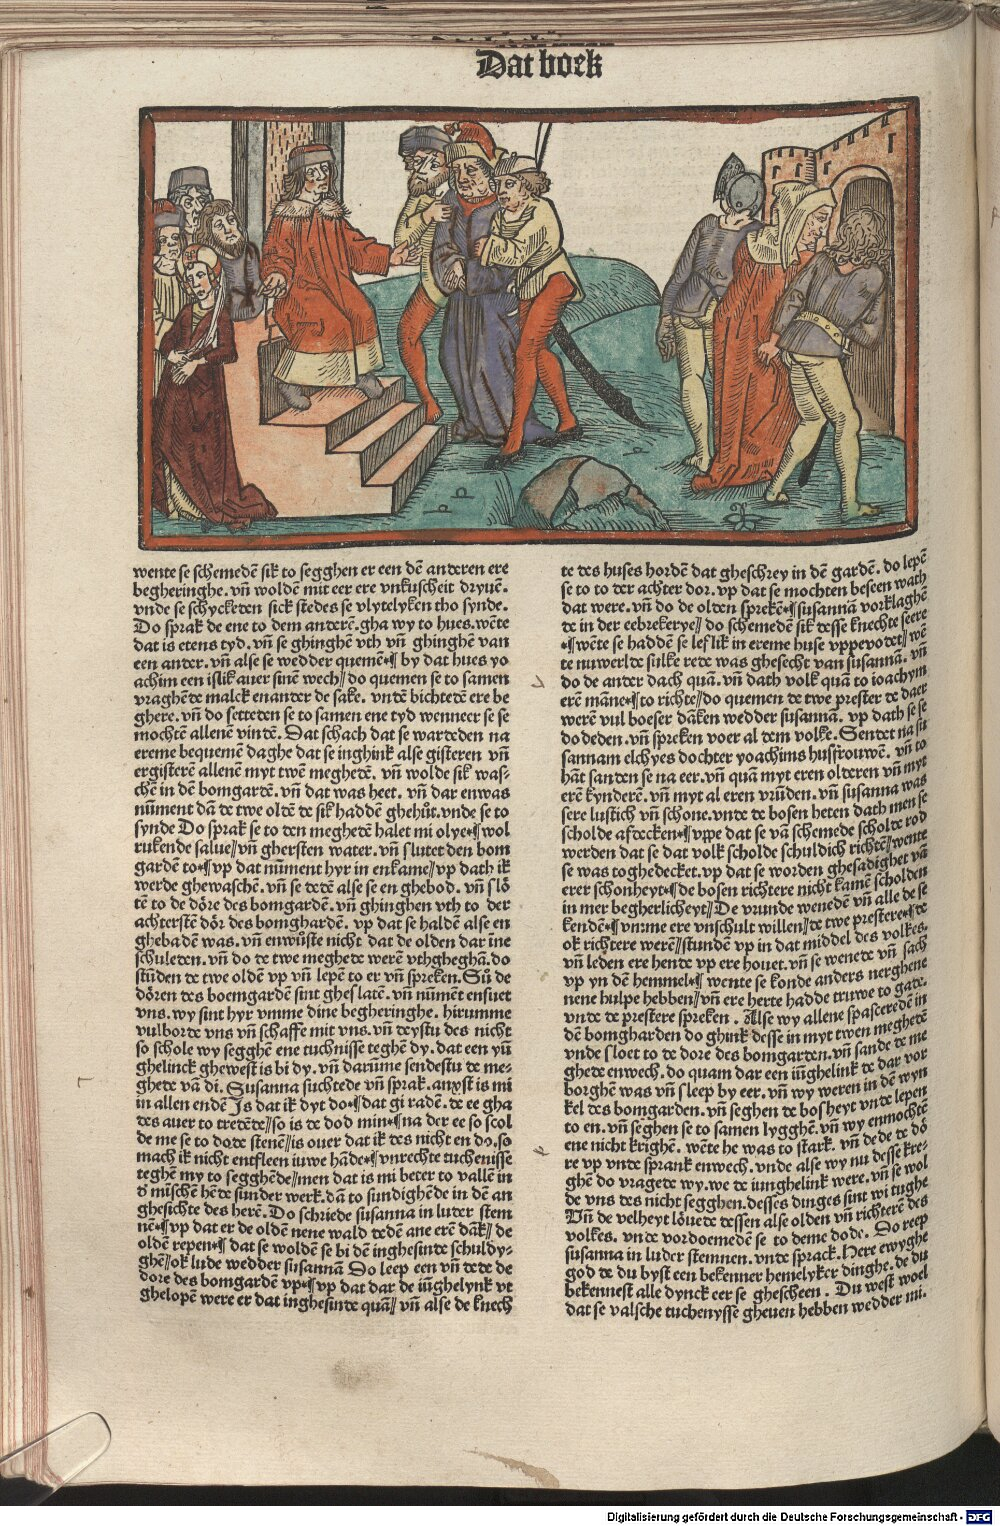 Dat boek
wente se schemedē sik to segghen er een dē anderen ere
begheringhe. vn̄ woldē mit eer ere vnkuscheit dryuē.
vnde se schyckeden sick stedes se vlytelyken tho synde.
Do sprak de ene to dem anderē. gha wy to hues. wēte
dat is etens tyd. vn̄ se ghinghē vth vn̄ ghinghē van
een ander. vn̄ alse se wedder quemē·¶ by dat hues yo
achim een islik auer sinē wech// do quemen se to samen
vraghēde malck enander de sake. vnde bichtedē ere be
ghere. vn̄ do setteden se to samen ene tyd wenneer se se
mochtē allenē vindē. Dat schach dat se wardeden na
ereme bequemē daghe dat se inghink alse gisteren vn̄
ergisterē allenē myt twē meghedē. vn̄ wolde sik was-
chē in dē bomgardē. vn̄ dat was heet. vn̄ dar enwas
nūment dā de twe oldē de sik haddē ghehůt. vnde se to
synde Do sprak se to den meghedē halet mi olye·¶ wol
rukende salue// vn̄ ghersten water. vn̄ slutet den bom
gardē to·¶ vp dat nūment hyr in enkame// vp dath ik
werde ghewaschē. vn̄ se dedē alse se en ghebod. vn̄ slō
tē to de dōre des bomgardē. vn̄ ghinghen vth to der
achterstē dōr des bomghardē. vp dat se haldē alse en
ghebadē was. vn̄ enwūste nicht dat de olden dar īne
schuleden. vn̄ do de twe meghede werē vthgheghā. do
stūden de twe oldē vp vn̄ lepē to er vn̄ spreken. Sů de
dōren des boemgardē sint gheslatē. vn̄ nūmēt ensuet
vns. wy sint hyr vmme dine begheringhe. hirumme
vulborde vns vn̄ schaffe mit vns. vn̄ deystu des nicht
so schole wy segghē ene tuchnisse teghē dy. dat een yū
ghelinck ghewest is bi dy. vn̄ darūme sendestu de me-
ghede vā di. Susanna suchtede vn̄ sprak. anxst is mi
in allen endē Is dat ik dyt do·¶ dat gi radē. de ee gha
des auer to tredēde// so is de dod min·¶ na der ee so scol
de me se to dode stenē// is ouer dat ik des nicht en do. so
mach ik nicht entfleen iuwe hāde·¶ vnrechte tuchenisse
teghē my to segghēde// men dat is mi beter to vallē in
d̄ mīschē hēde sunder werk. dā to sundighēde in dē an
ghesichte des herē. Do schriede susanna in luder stem
nē·¶ vp dat er de oldē nene wald dedē ane erē dāk// de
oldē repen·¶ dat se woldē se bi dē inghesinde schuldy-
ghē// ok lude wedder susannā Do leep een vn̄ dede de
dore des bomgardē vp·¶ vp dat dar de iūghelynk vt
ghelopē were er dat inghesinde quā// vn̄ alse de knech
te des huses hordē dat gheschrey in dē gardē. do lepē
se to to der achter dor. vp dat se mochten beseen wath
dat were. vn̄ do de olden sprekē·¶ susannā vorklaghē
de in der eebrekerye// do schemedē sik desse knechte seere
·¶ wēte se haddē se leflik in ereme huse vppevodet// wē
te nuwerlde sulke rede was ghesecht van susannā. vn̄
do de ander dach quā. vn̄ dath volk quā to ioachym
erē māne·¶ to richte// do quemen de twe prester de daer
werē vul boeser dākē wedder susannā. vp dath se se
do deden. vn̄ spreken voer al dem volke. Sendet na su
sannam elchyes dochter yoachims husfrouwē. vn̄ to
hāt sanden se na eer. vn̄ quā myt eren olderen vn̄ myt
erē kynderē. vn̄ myt al eren vrūden. vn̄ susanna was
sere lustich vn̄ schone. vnde de bosen heten dath men se
scholde afdecken·¶ vppe dat se vā schemede scholde rod
werden dat se dat volk scholde schuldich richtē// wente
se was toghedecket. vp dat se worden ghesadighet vā
erer schonheyt·¶ de bosen richtere nicht kamē scholden
in mer begherlicheyt// De vrunde wenedē vn̄ alle de se
kendē·¶ vmme ere vnschult willen// de twe prestere·¶ de
ok richtere werē// stunden vp in dat middel des volkes.
vn̄ leden ere hende vp ere houet. vn̄ se wenede vn̄ sach
vp yn dē hemmel·¶ wente se konde anders nerghene
nene hulpe hebben// vn̄ ere herte hadde truwe to gade.
vnde de prestere spreken . Alse wy allene spasceredē in
dē bomgharden do ghink desse in myt twen meghedē
vnde sloet to de dore des bomgarden. vn̄ sande de me
ghede enwech. do quam dar een iūghelink de dar vor
borghē was vn̄ sleep by eer. vn̄ wy weren in dē wyn
kel des bomgarden. vn̄ seghen de bosheyt vnde lepen
to en. vn̄ seghen se to samen lygghē. vn̄ wy enmochtē
ene nicht krighē. wēte he was to stark. vn̄ dede de dō
re vp vnde sprank enwech. vnde alse wy nu desse kre-
ghē do vragede wy. we de iunghelink were. vn̄ se wol
de vns des nicht segghen. desses dinges sint wi tughe
Vn̄ de velheyt lōuede dessen alse olden vn̄ richterē des
volkes. vnde vordoemedē se to deme dode. Do reep
susanna in luder stemnen. vnde sprack. Here ewyghe
god de du byst een bekenner hemelyker dinghe. de du
bekennest alle dynck eer se ghescheen . Du west woel
dat se valsche tuchenysse gheuen hebben wedder mi.
Digitalisierung gefördert durch die Deutsche Forschungsgemeinschaft - DFG